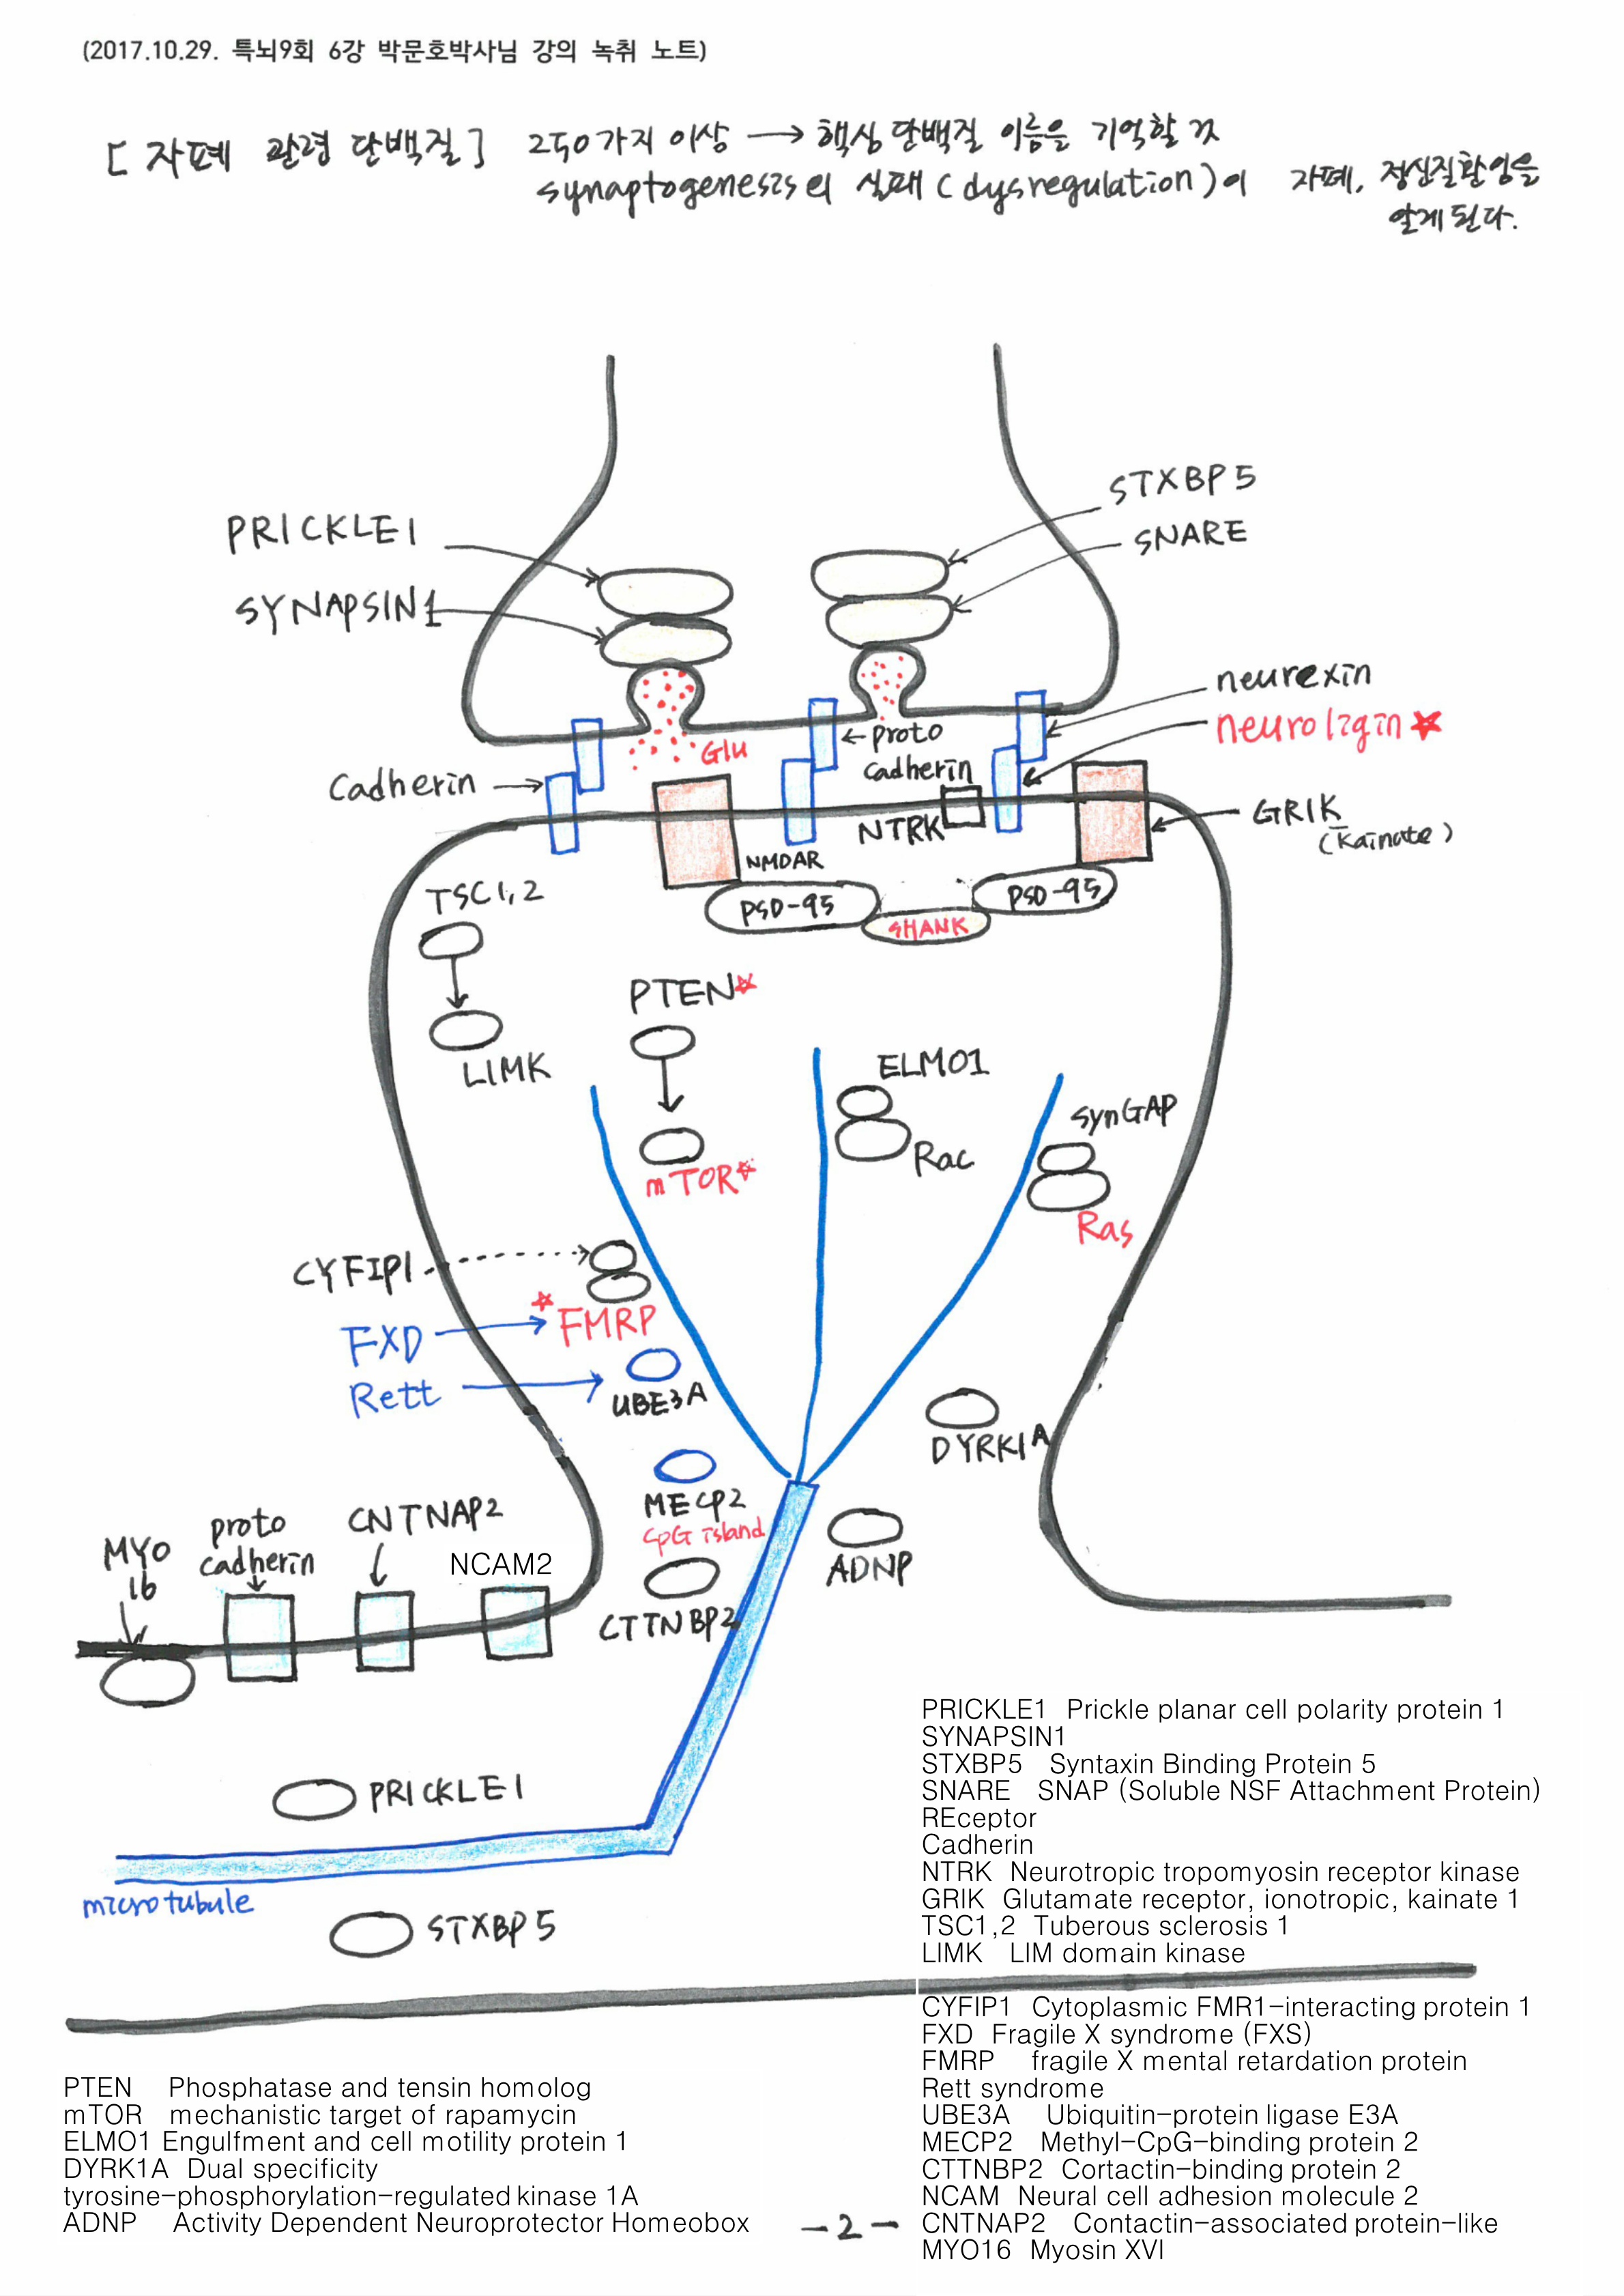 (2017.10.29. 특뇌9회 6강 박문호박사님 강의 녹취 노트)
[자폐 관련 단백질] 250가지 이상 → 핵심 단백질 이름을 기억할 것
synaptogenesis의 실패(dysregulation)이 자폐, 정신질환임을
알게된다.
STXBP5
PRICKLE1
SNARE
SYNAPSIN1
neurexin
neuroligin ★
Glu
←proto
cadherin
Cadherin →
NTRK
GRIK
(Kainate)
NMDAR
TSC1,2
PSD-95
PSD-95
SHANK
PTEN☆
LIMK
ELMO1
synGAP
Rac
mTOR☆
Ras
CYFIP1
☆FMRP
FXD
Rett
UBE3A
DYRK1A
MECP2
CpG island
CNTNAP2
proto
cadherin
MYO
16
NCAM2
ADNP
CTTNBP2
PRICKLE1
microtubule
STXBP5
PRICKLE1 Prickle planar cell polarity protein 1
SYNAPSIN1
STXBP5 Syntaxin Binding Protein 5
SNARE SNAP (Soluble NSF Attachment Protein)
REceptor
Cadherin
NTRK Neurotropic tropomyosin receptor kinase
GRIK Glutamate receptor, ionotropic, kainate 1
TSC1,2 Tuberous sclerosis 1
LIMK LIM domain kinase
CYFIP1 Cytoplasmic FMR1-interacting protein 1
FXD Fragile X syndrome (FXS)
FMRP fragile X mental retardation protein
Rett syndrome
UBE3A Ubiquitin-protein ligase E3A
MECP2 Methyl-CpG-binding protein 2
CTTNBP2 Cortactin-binding protein 2
NCAM Neural cell adhesion molecule 2
CNTNAP2 Contactin-associated protein-like
MYO16 Myosin XVI
PTEN Phosphatase and tensin homolog
mTOR mechanistic target of rapamycin
ELMO1 Engulfment and cell motility protein 1
DYRK1A Dual specificity
tyrosine-phosphorylation-regulated kinase 1A
ADNP Activity Dependent Neuroprotector Homeobox
-2-